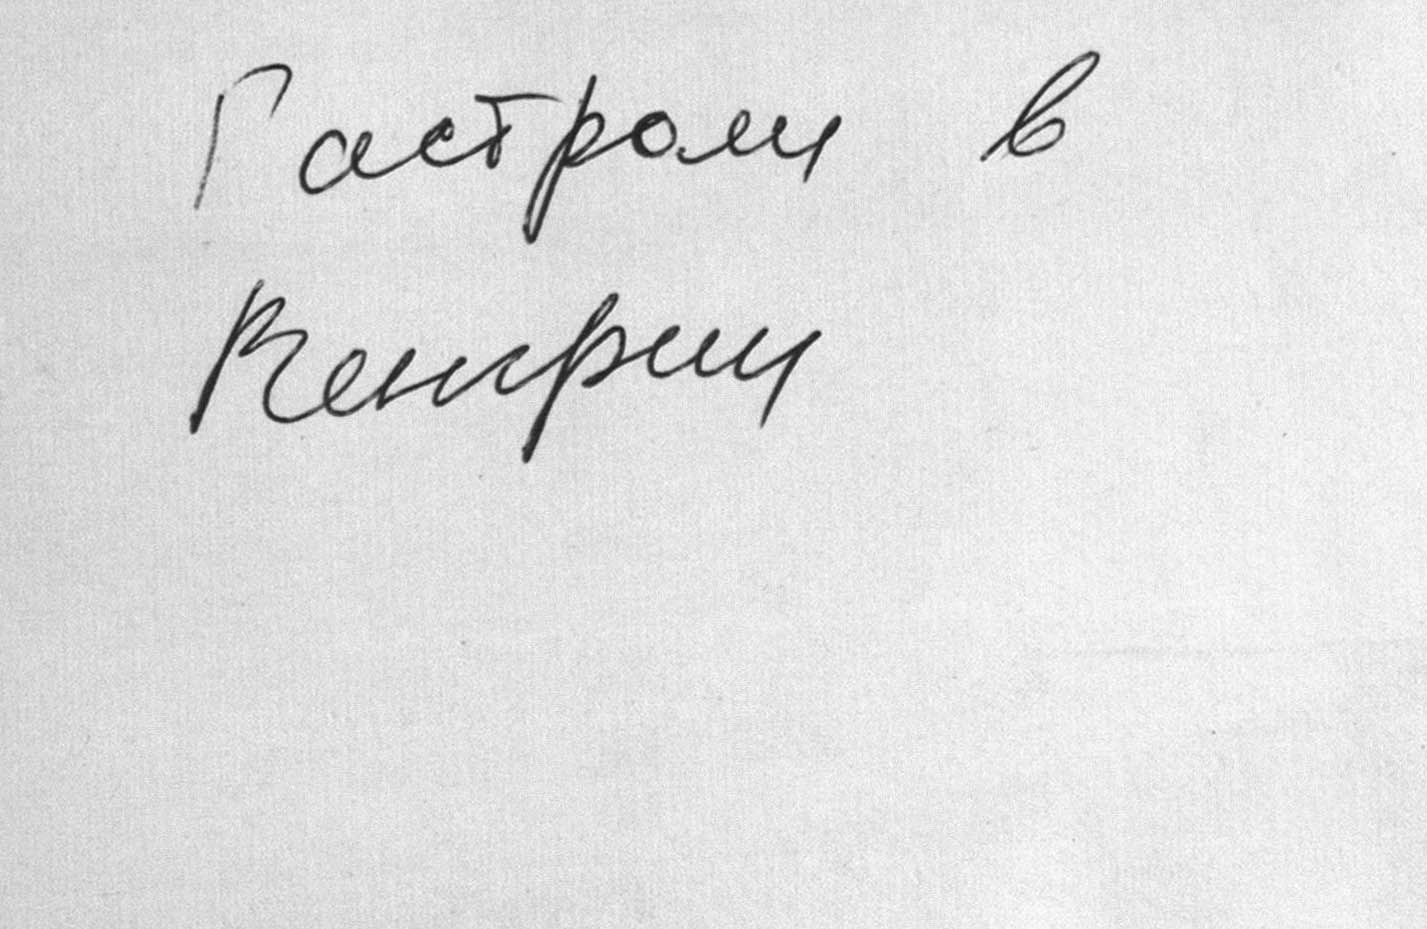 Гастроли в
Венгрии